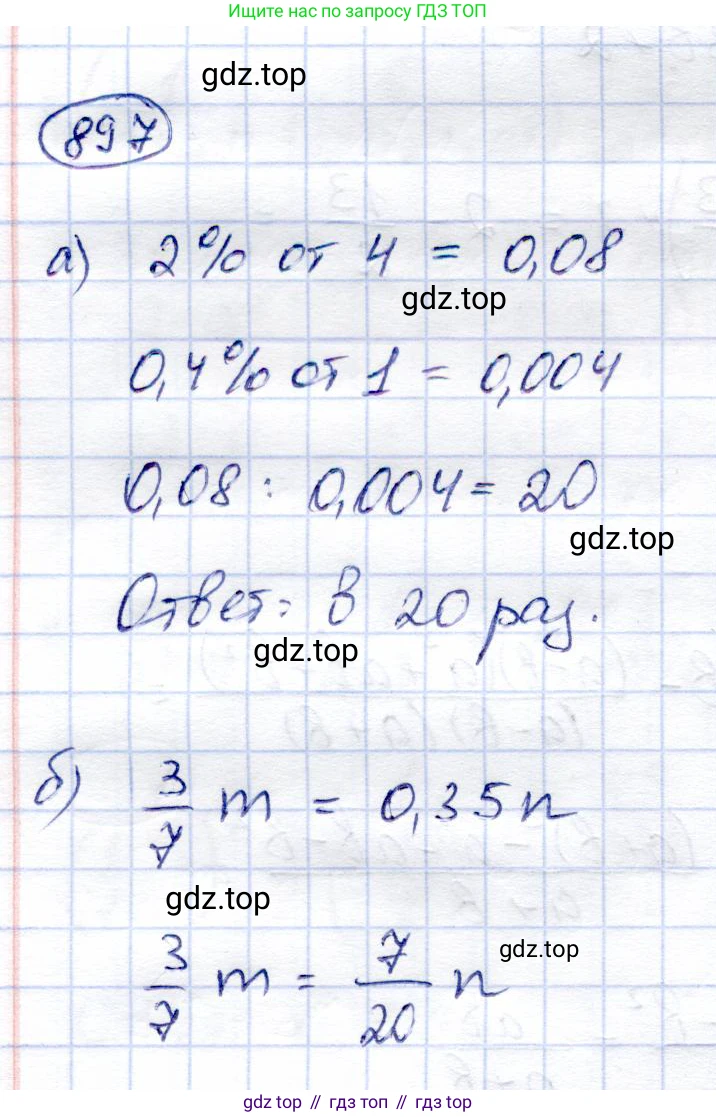 Ищите нас по запросу ГДЗ ТОП
gdz.top
897
а) 2% от 4 = 0,08
gdz.top
0,4% от 1 = 0,004
0,08 : 0,004 = 20
gdz.top
Ответ: в 20 раз.
gdz.top
б) 3/7 m = 0,35n
gdz.top
3/7 m = 7/20 n
gdz.top
gdz.top // гдз топ // gdz.top // гдз топ